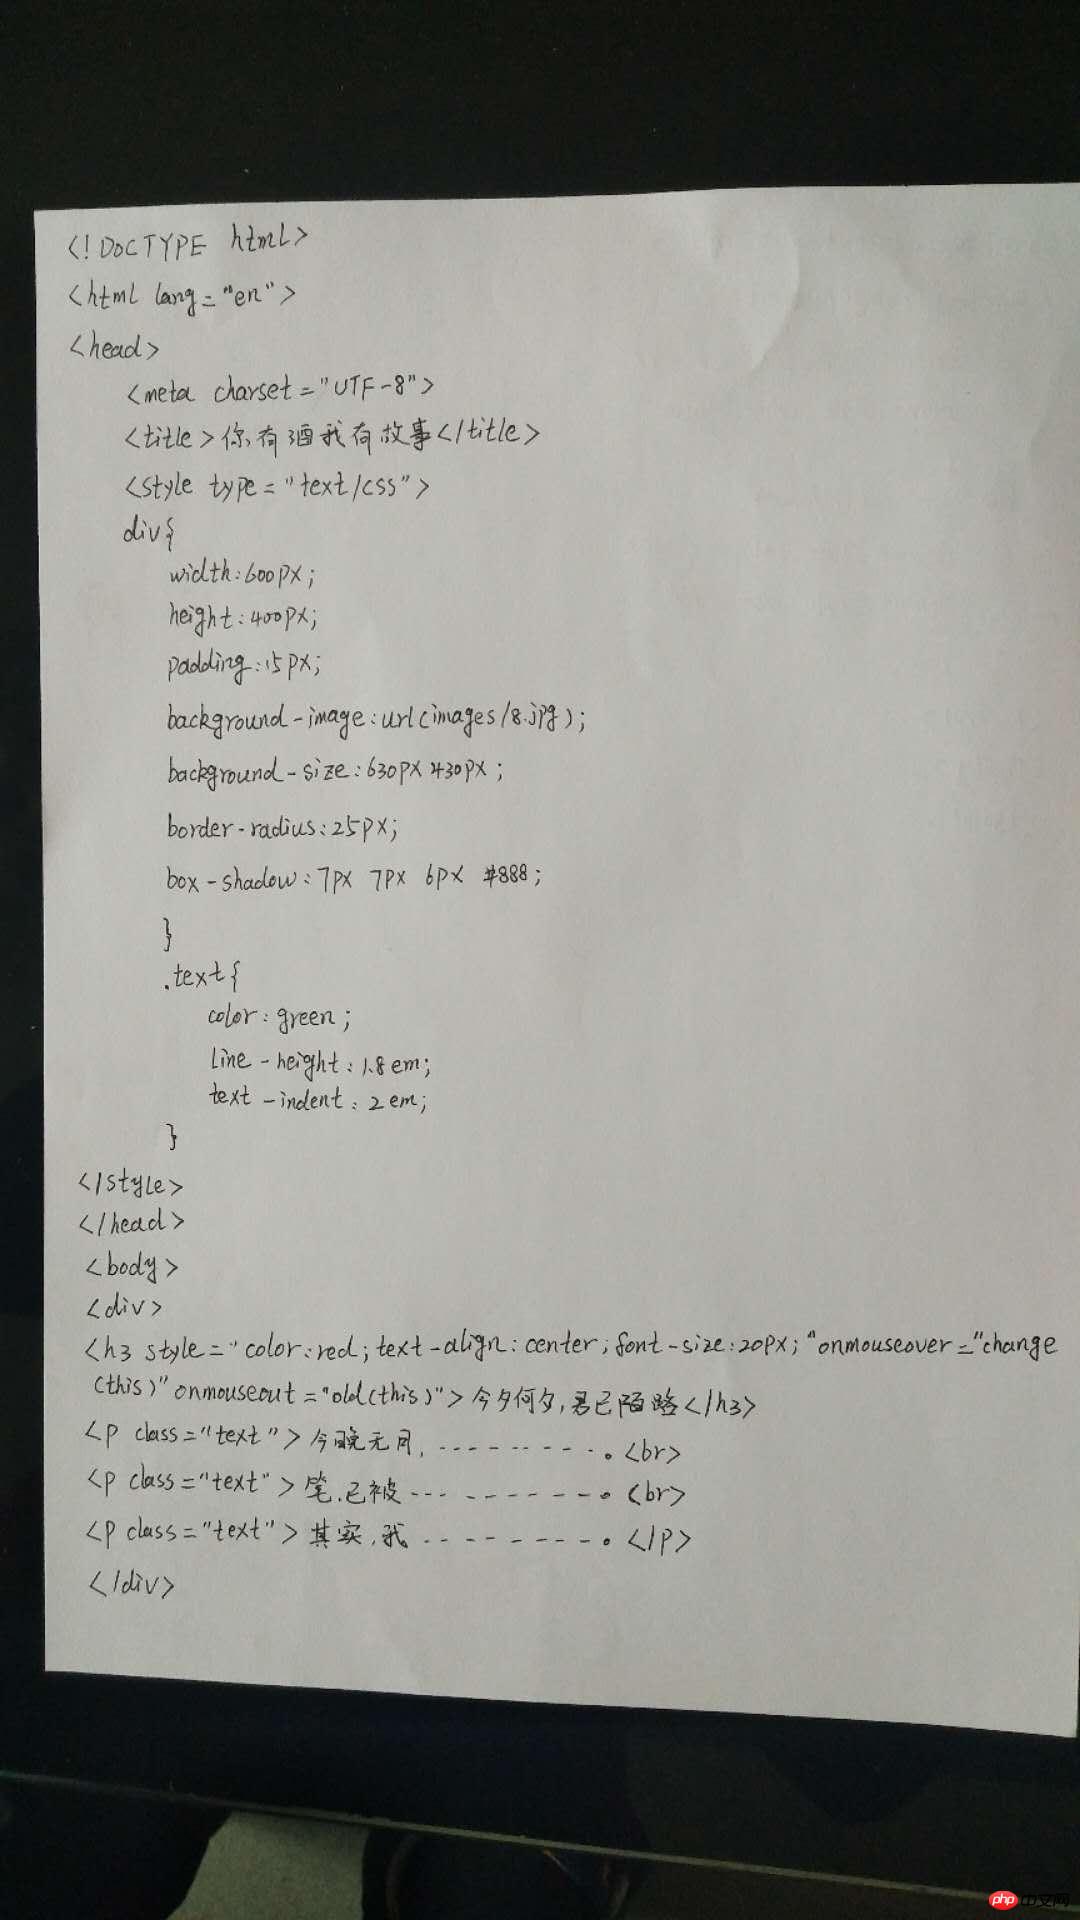 <!DOCTYPE html>
<html lang="en">
<head>
<meta charset="UTF-8">
<title>你有酒我有故事</title>
<style type="text/css">
div{
width:600px;
height:400px;
padding:15px;
background-image:url(images/8.jpg);
background-size:630px 430px;
border-radius:25px;
box-shadow:7px 7px 6px #888;
}
.text{
color:green;
line-height:1.8em;
text-indent:2em;
}
</style>
</head>
<body>
<div>
<h3 style="color:red;text-align:center;font-size:20px;"onmouseover="change
(this)"onmouseout="old(this)">今夕何夕,君已陌路</h3>
<p class="text">今晚无月,----------。<br>
<p class="text">笔,已被----------。<br>
<p class="text">其实,我----------。</p>
</div>
php 中文网